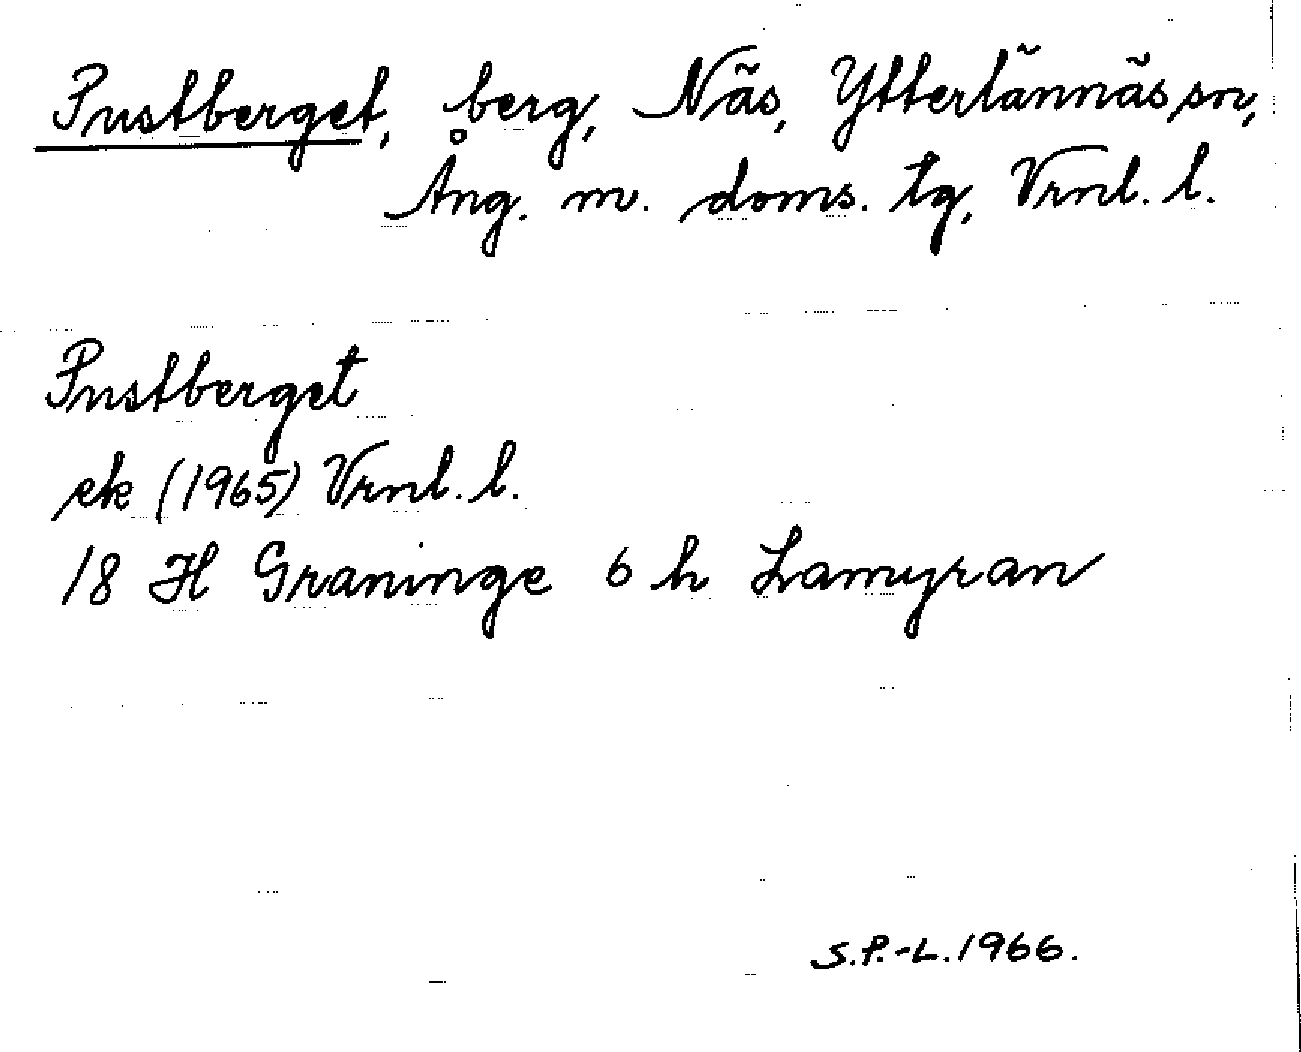 Pustberget, berg, Näs, Ytterlännäs sn,
Ång. m. doms. tg, Vrnl. l.
Pustberget
ek (1965) Vrnl. l.
18 H Graninge 6 h Lamyran
S.P.-L. 1966.